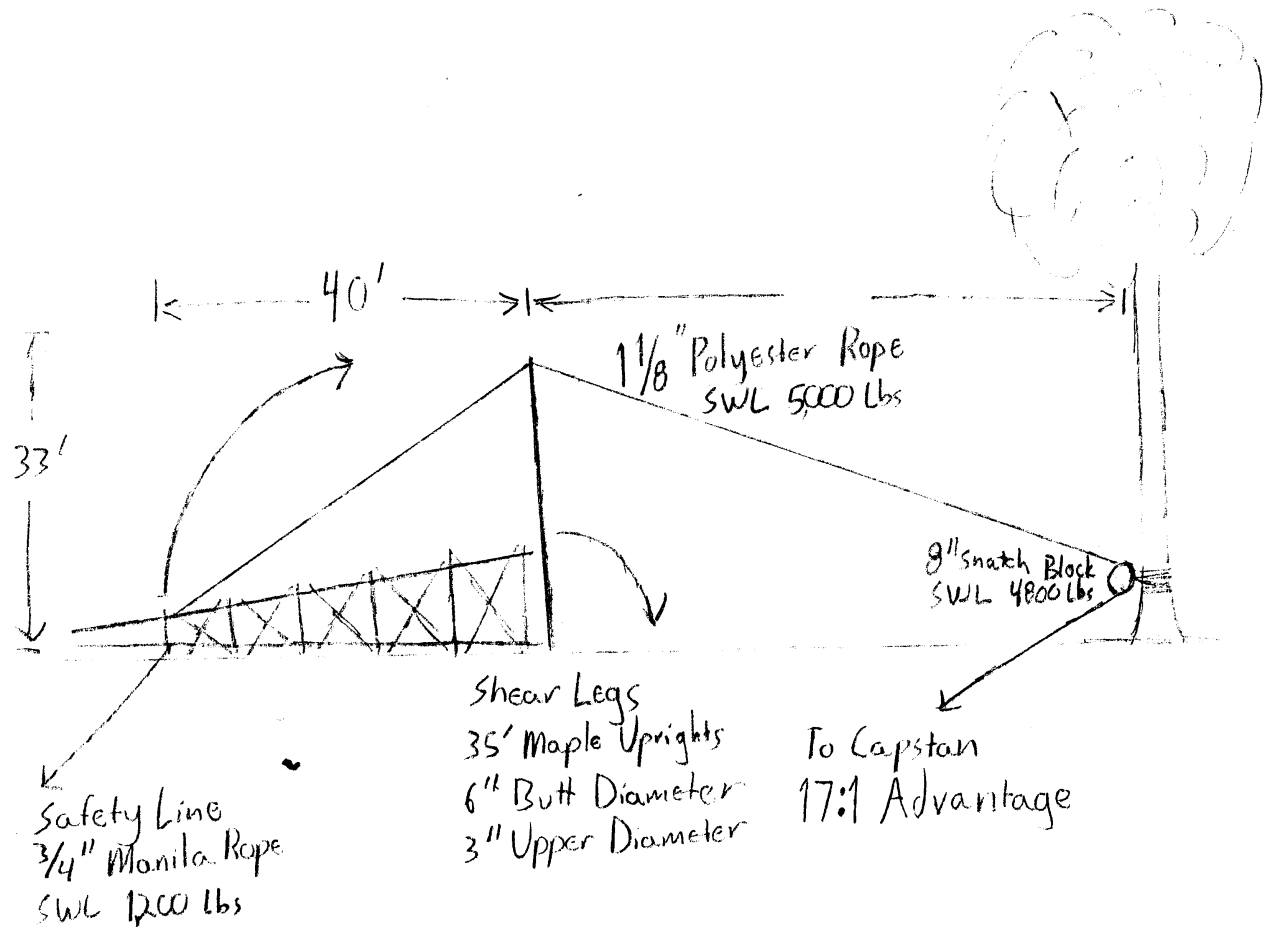 40'
1 1/8" Polyester Rope
SWL 5,000 Lbs
33'
8" Snatch Block
SWL 4800 Lbs
Shear Legs
35' Maple Uprights
6" Butt Diameter
3" Upper Diameter
To Capstan
17:1 Advantage
Safety Line
3/4" Manila Rope
SWL 1,200 Lbs